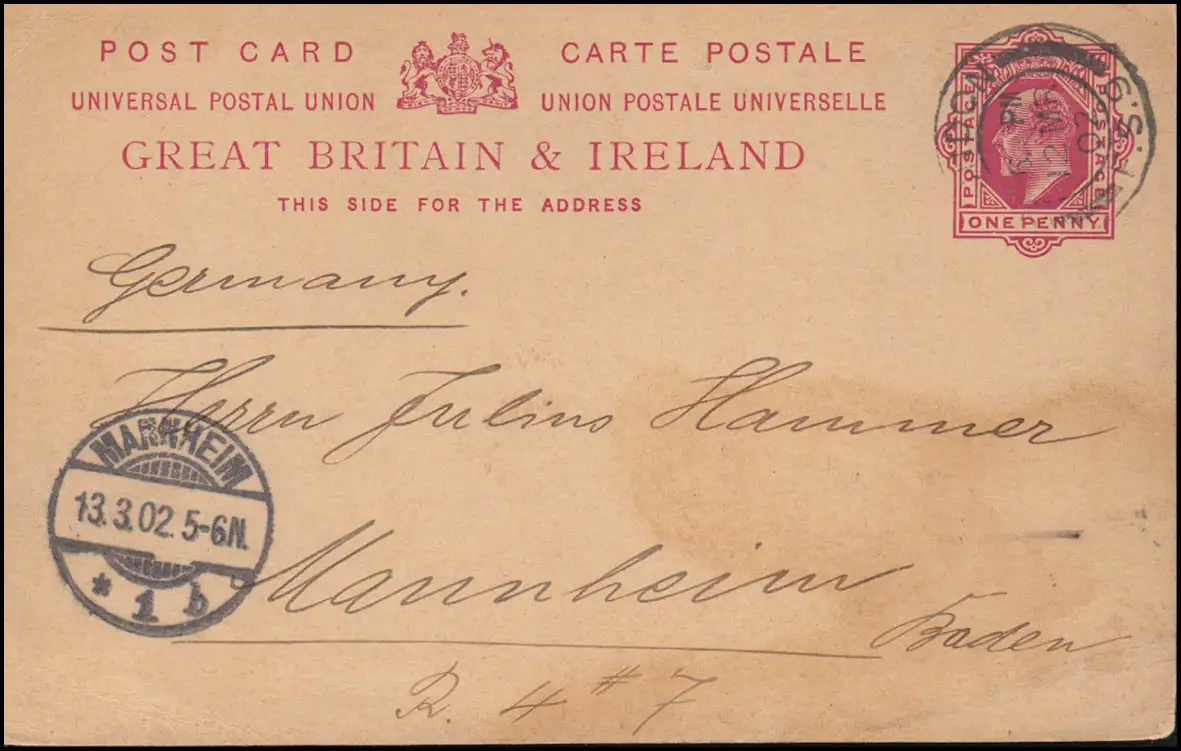 POST CARD CARTE POSTALE
UNIVERSAL POSTAL UNION UNION POSTALE UNIVERSELLE
GREAT BRITAIN & IRELAND
THIS SIDE FOR THE ADDRESS
POSTAGE POSTAGE
ONE PENNY
PM
MR
02
Germany.
Herrn Julius Hammer
MANNHEIM
13.3.02. 5-6N.
* 1 b
Mannheim
Baden
R. 4 # 7